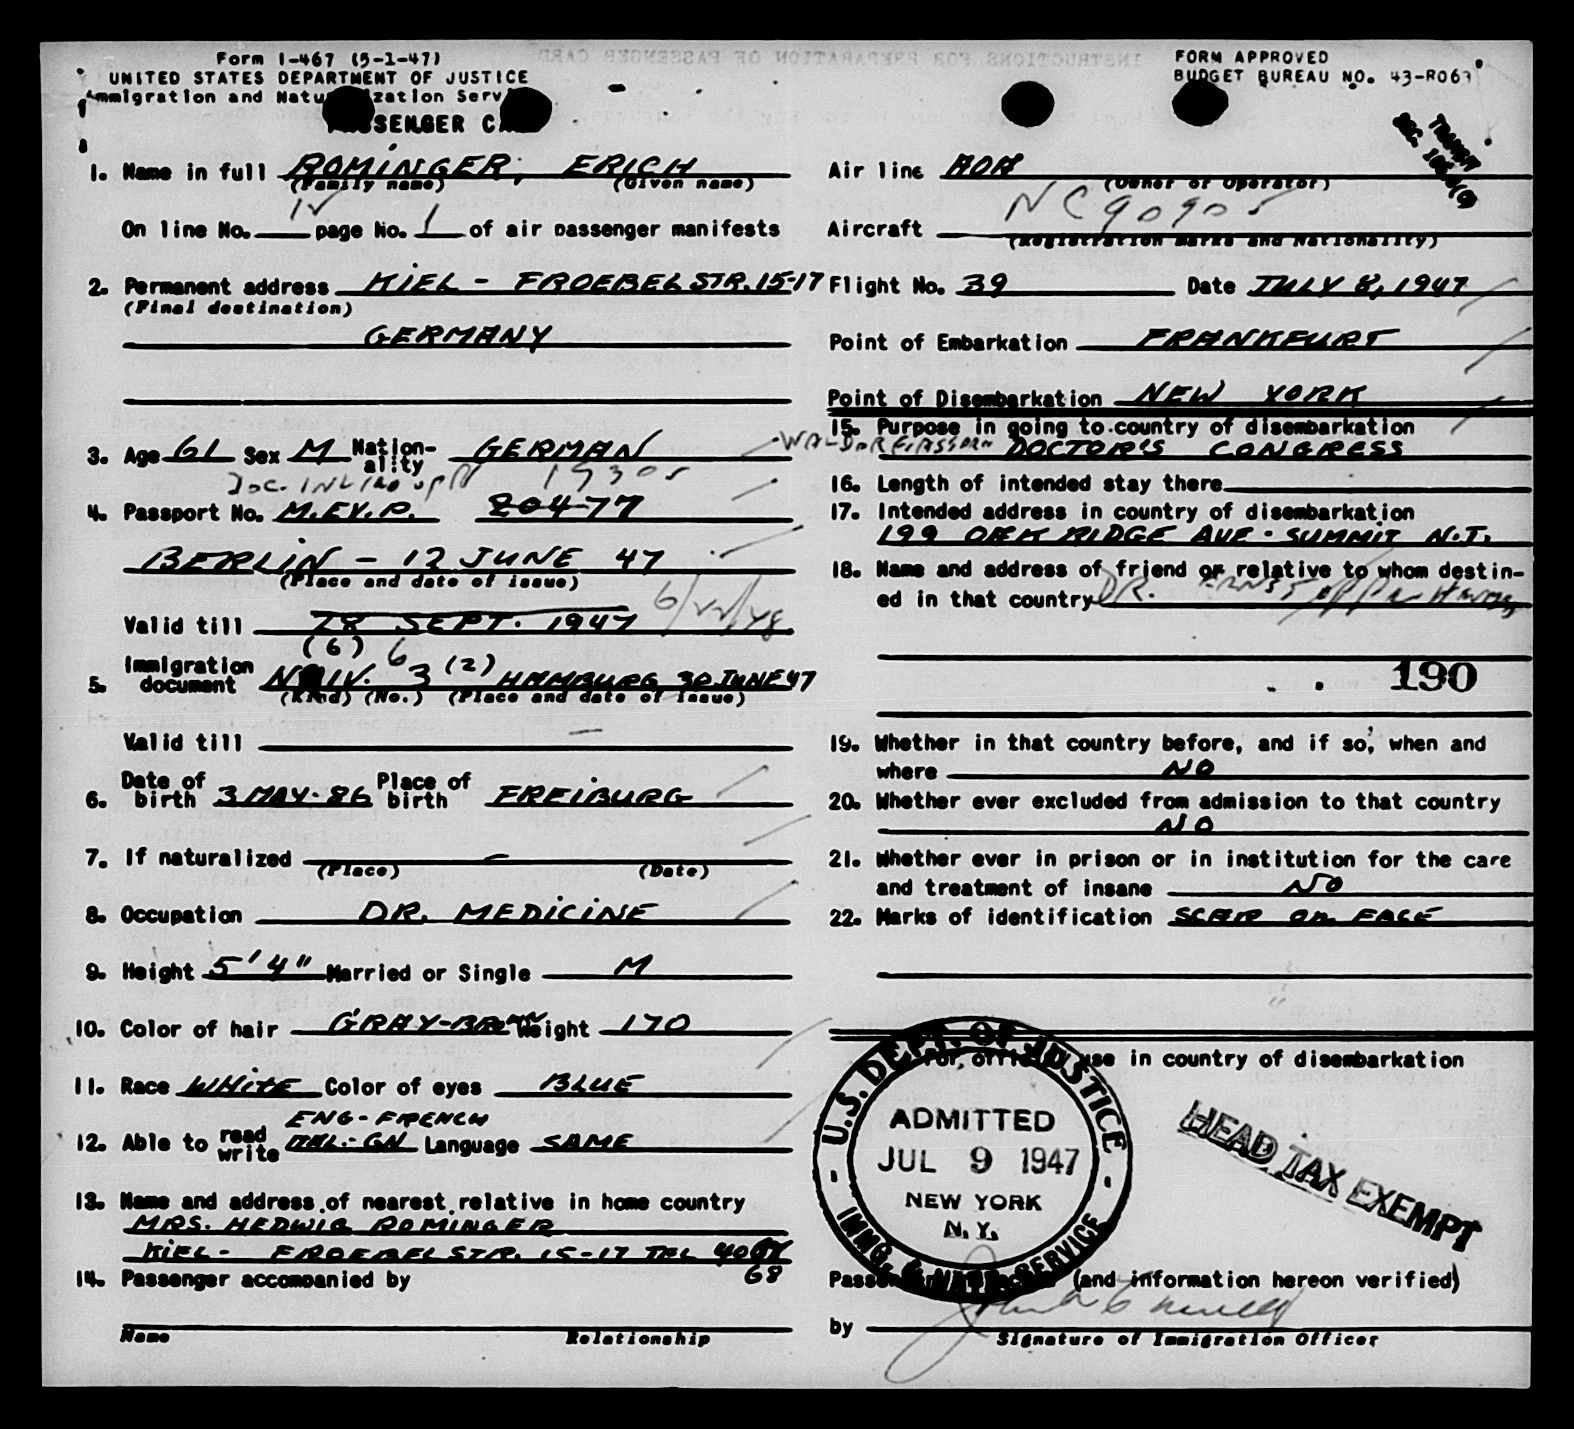 Form I-467 (5-1-47)
UNITED STATES DEPARTMENT OF JUSTICE
Immigration and Naturalization Service
PASSENGER CARD
FORM APPROVED
BUDGET BUREAU NO. 43-R067
1. Name in full ROMINGER, ERICH
(Family name) (Given name)
On line No. 12 page No. 1 of air passenger manifests
2. Permanent address KIEL - FROEBELSTR. 15-17
(Final destination)
GERMANY
3. Age 61 Sex M Nationality GERMAN
19305
4. Passport No. M.EX.P. 20477
BERLIN - 12 JUNE 47
(Place and date of issue)
Valid till 78 SEPT. 1947 6/22/48
(6) 6 (2)
5. Immigration document NQIV. 3 HAMBURG 30 JUNE 47
(Kind) (No.) (Place and date of issue)
Valid till
6. Date of birth 3 MAY. 86 Place of birth FREIBURG
7. If naturalized —
(Place) (Date)
8. Occupation DR. MEDICINE
9. Height 5' 4" Married or Single M
10. Color of hair GRAY-BROWN Weight 170
11. Race WHITE Color of eyes BLUE
ENG-FRENCH
12. Able to read write ITAL.-GN Language SAME
13. Name and address of nearest relative in home country
MRS. HEDWIG ROMINGER
KIEL - FROEBELSTR. 15-17 TEL 40
68
14. Passenger accompanied by
Name Relationship
Air line AOA
(Owner or Operator)
Aircraft NC90905
(Registration marks and Nationality)
Flight No. 39 Date JULY 8, 1947
Point of Embarkation FRANKFURT
Point of Disembarkation NEW YORK
15. Purpose in going to country of disembarkation
DOCTOR'S CONGRESS
16. Length of intended stay there
17. Intended address in country of disembarkation
199 OAK RIDGE AVE - SUMMIT N.J.
18. Name and address of friend or relative to whom destined in that country DR. ERNST
190
19. Whether in that country before, and if so, when and
where NO
20. Whether ever excluded from admission to that country
NO
21. Whether ever in prison or in institution for the care
and treatment of insane NO
22. Marks of identification SCAR ON FACE
For official use in country of disembarkation
U.S. DEPT. OF JUSTICE
ADMITTED
JUL 9 1947
NEW YORK
N.Y.
IMMG. & NATZ. SERVICE
HEAD TAX EXEMPT
Passenger (and information hereon verified)
by
Signature of Immigration Officer